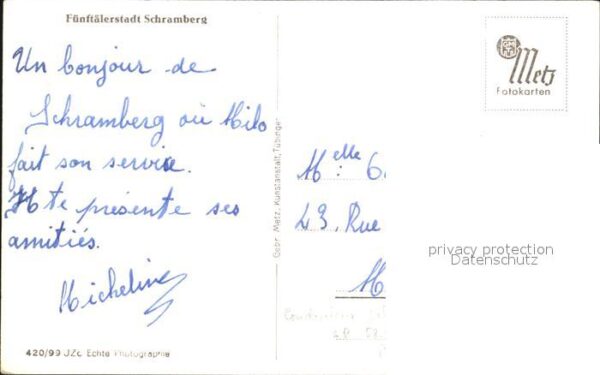 Fünftälerstadt Schramberg
Un bonjour de
Schramberg où Milo
fait son service.
Il te présente ses
amitiés.
Micheline
420/99 JZc Echte Photographie
Gebr. Metz, Kunstanstalt, Tübingen
Metz
Fotokarten
Melle G
43. Rue
M
privacy protection
Datenschutz